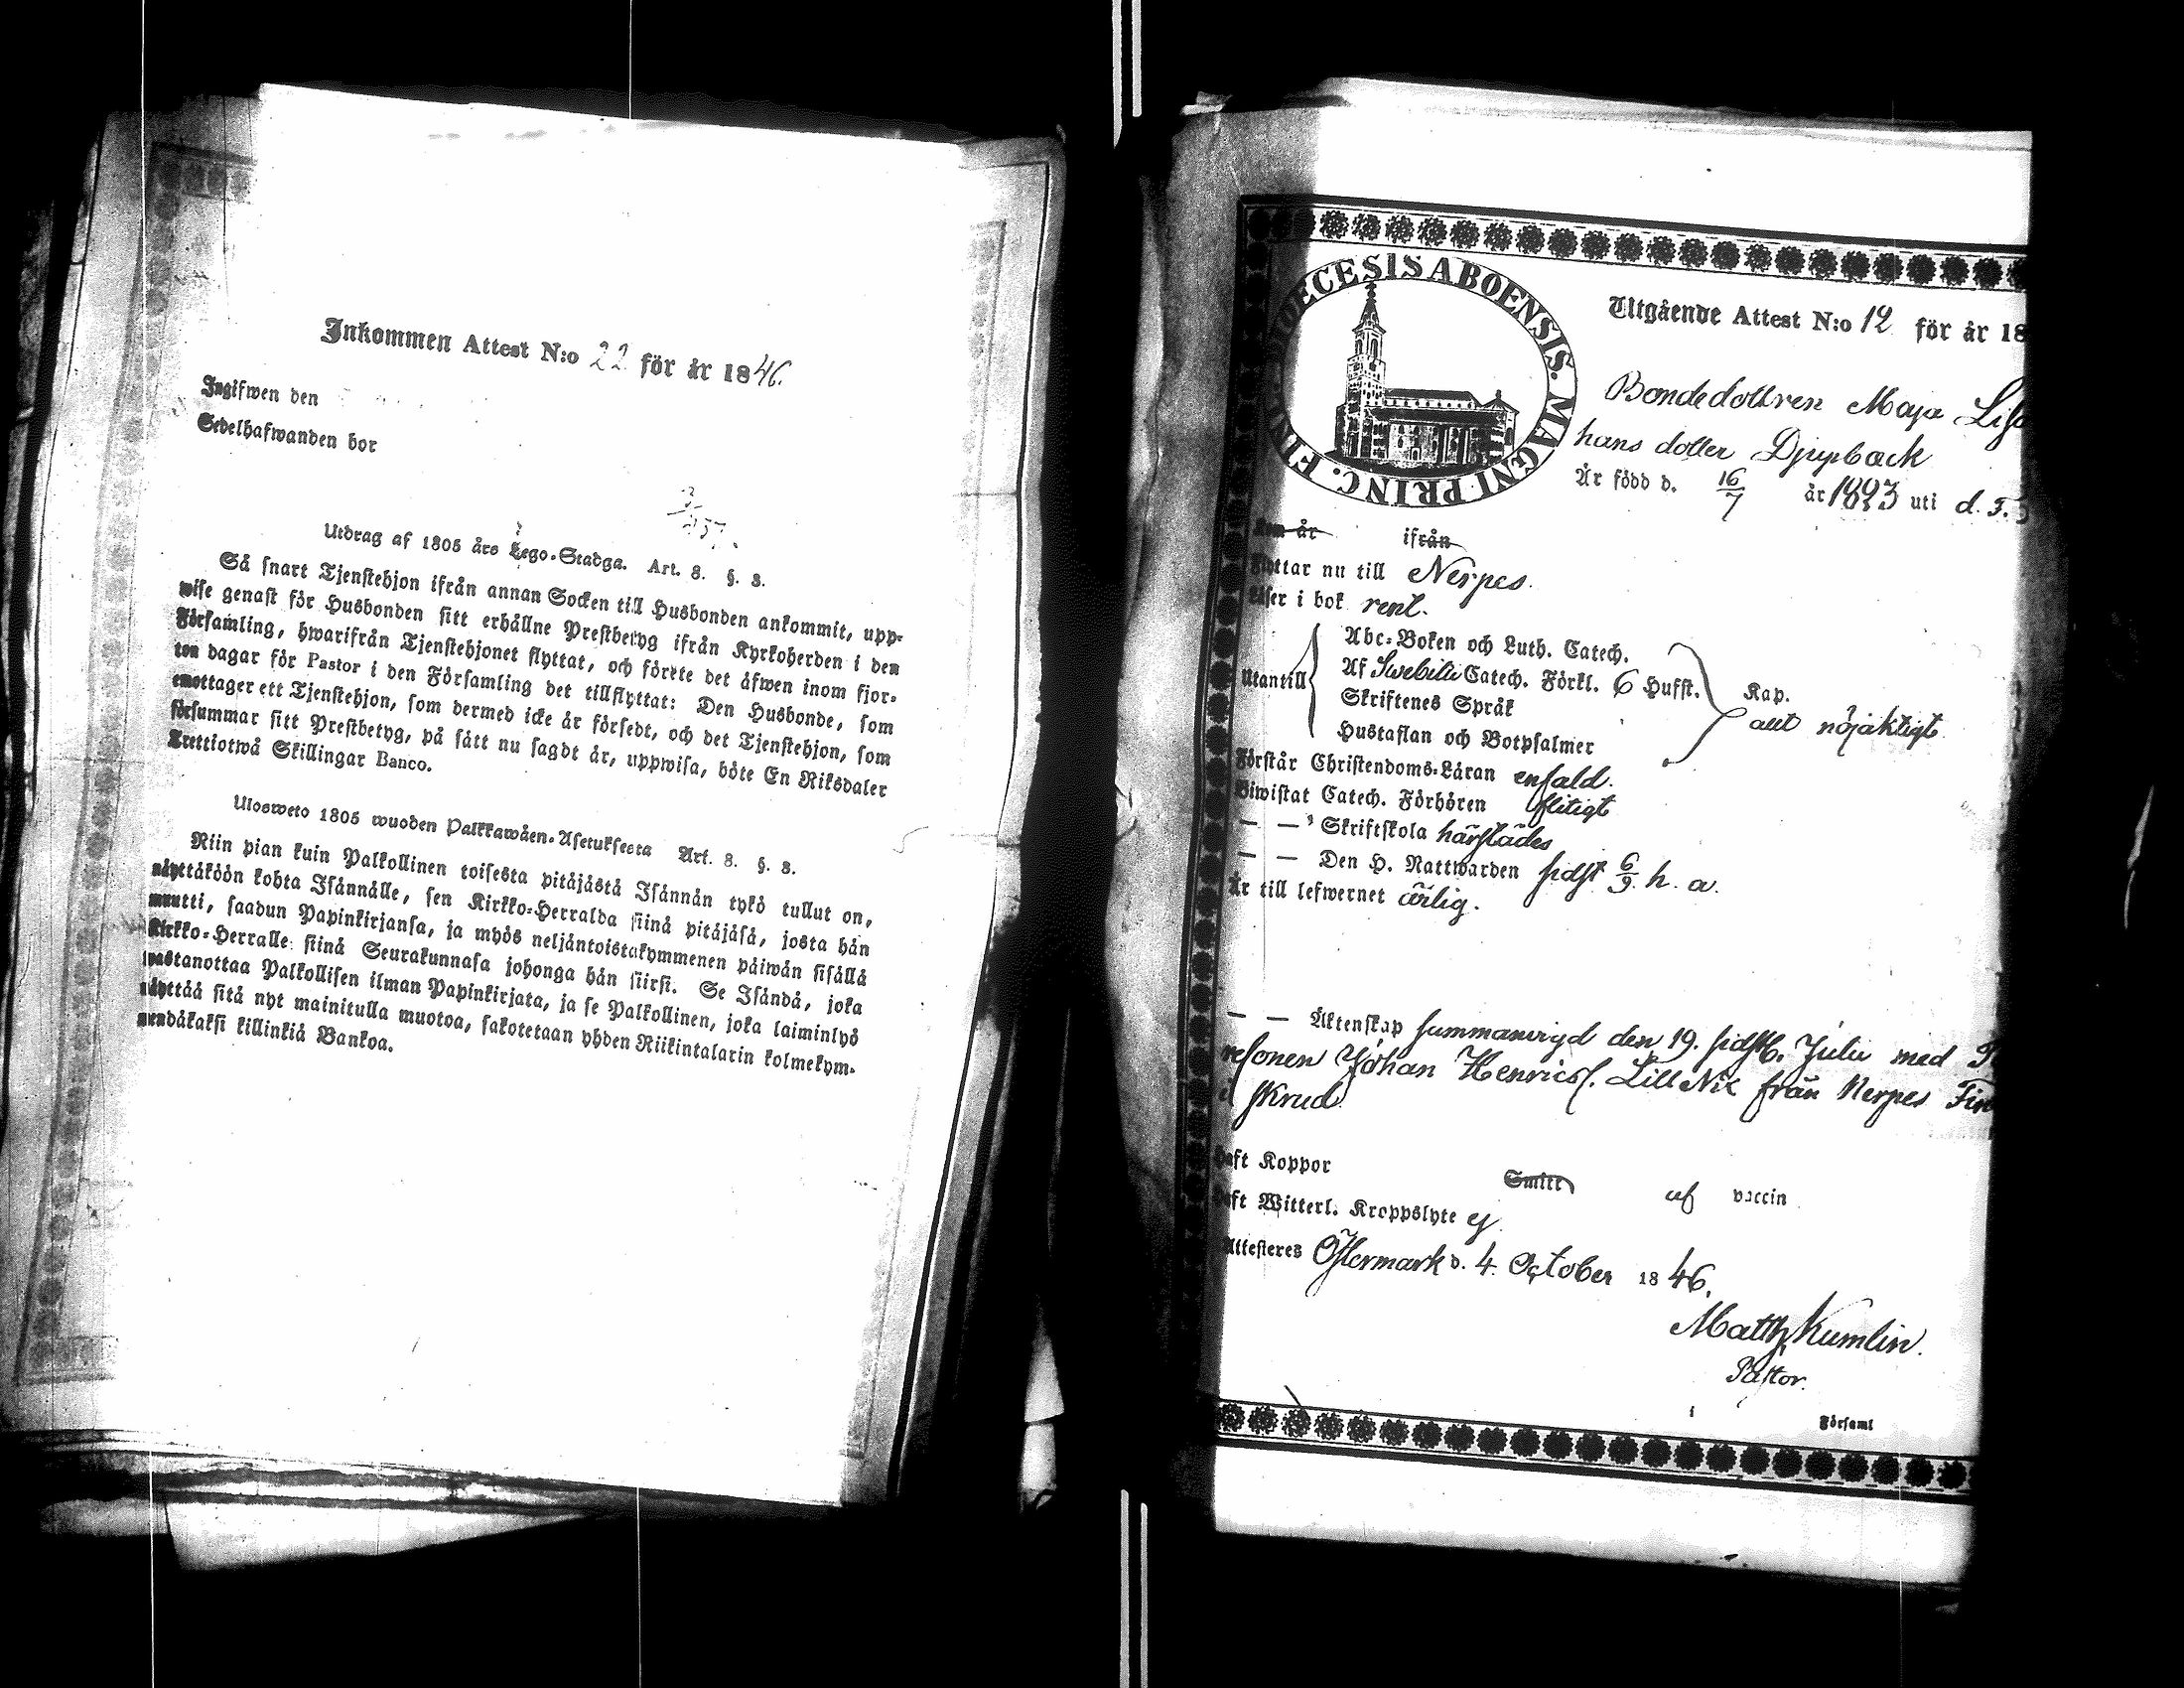 Inkommen Attest N:o 22 för år 1846.
Ingifwen den
Sedelhafwanden bor
3/257.
Utdrag af 1805 års Lego-Stadga. Art. 8. §. 3.
Så snart Tjenstehjon ifrån annan Socken till Husbonden ankommit, upp-
wise genast för Husbonden sitt erhållne Prestbetyg ifrån Kyrkoherden i den
Församling, hwarifrån Tjenstehjonet flyttat, och förete det äfwen inom fjor-
ton dagar för Pastor i den Församling det tillflyttat: Den Husbonde, som
emottager ett Tjenstehjon, som dermed icke är försedt, och det Tjenstehjon, som
försummar sitt Prestbetyg, på sätt nu sagdt är, uppwisa, böte En Riksdaler
Trettiotwå Skillingar Banco.
Ulosweto 1805 wuoden Palkkawäen-Asetuksesta Art. 8. §. 3.
Niin pian kuin Palkollinen toisesta pitäjästä Isännän tykö tullut on,
näyttäköön kohta Isännälle, sen Kirkko-Herralda siinä pitäjäsä, josta hän
muutti, saadun Papinkirjansa, ja myös neljäntoistakymmenen päiwän sisällä
Kirkko-Herralle siinä Seurakunnasa johonga hän siirsi. Se Isändä, joka
wastanottaa Palkollisen ilman Papinkirjata, ja se Palkollinen, joka laiminlyö
näyttää sitä nyt mainitulla muotoa, sakotetaan yhden Riikintalarin kolmekym-
mendäkaksi killinkiä Bankoa.
DIOECESIS ABOENSIS. MAGNI PRINC. FINL.
Utgående Attest N:o 12 för år 18
Bondedottren Maja Lisa
hans dotter Djupback
Är född d. 16/7 år 1823 uti d. S.
Kom år ifrån
Flyttar nu till Nerpes.
Läser i bok rent.
Abc-Boken och Luth. Catech.
Utantill Af Swebilii Catech. Förkl. 6 Hufst. Kap.
Skriftenes Språk allt nöjaktigt
Hustaflan och Botpsalmer
Förstår Christendoms-Läran enfald.
Biwistat Catech. Förhören flitigt
— — Skriftskola härstädes
— — Den H. Nattwarden sidst 6/9. h. a.
Är till lefwernet ärlig.
— — Äktenskap sammanvigd den 19. sidstl. Julii med
Johan Henrics. LillNix från Nerpes Fin
Skrud
Haft Koppor Smitt af vaccin
Haft Witterl. Kroppslyte ej
Attesteres Östermark d. 4. October 1846.
Matth Kumlin.
Pastor.
i Församl